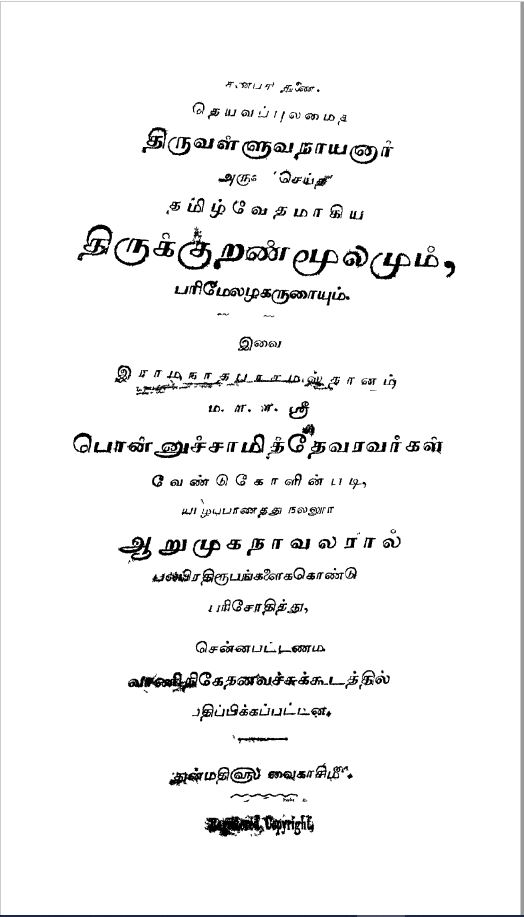 தெய்வப்புலமைத்
திருவள்ளுவநாயனார்
அருளிச்செய்த
தமிழ்வேதமாகிய
திருக்குறண்மூலமும்,
பரிமேலழகருரையும்.
இவை
இராமநாதபுரசமஸ்தானம்
ம. ள. ள. ஸ்ரீ
பொன்னுச்சாமித்தேவரவர்கள்
வேண்டுகோளின்படி,
யாழ்ப்பாணத்து நல்லூர்
ஆறுமுகநாவலரால்
பலபிரதிரூபங்களைக்கொண்டு
பரிசோதித்து,
சென்னபட்டணம்
வாணிநிகேதனவச்சுக்கூடத்தில்
பதிப்பிக்கப்பட்டன.
துன்மதி௵ வைகாசி௴.
Registered, Copyright,